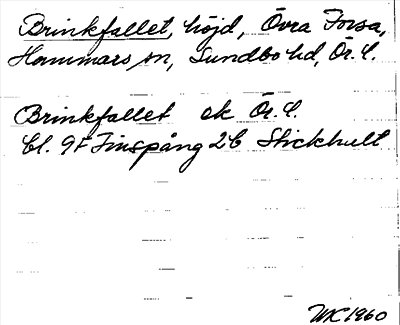 Brinkfallet, höjd, Övra Forsa,
Hammars sn, Sundbo hd, Ör. l.
Brinkfallet ek Ör. l.
bl. 9F Finspång 2b Stickhult
WK 1960